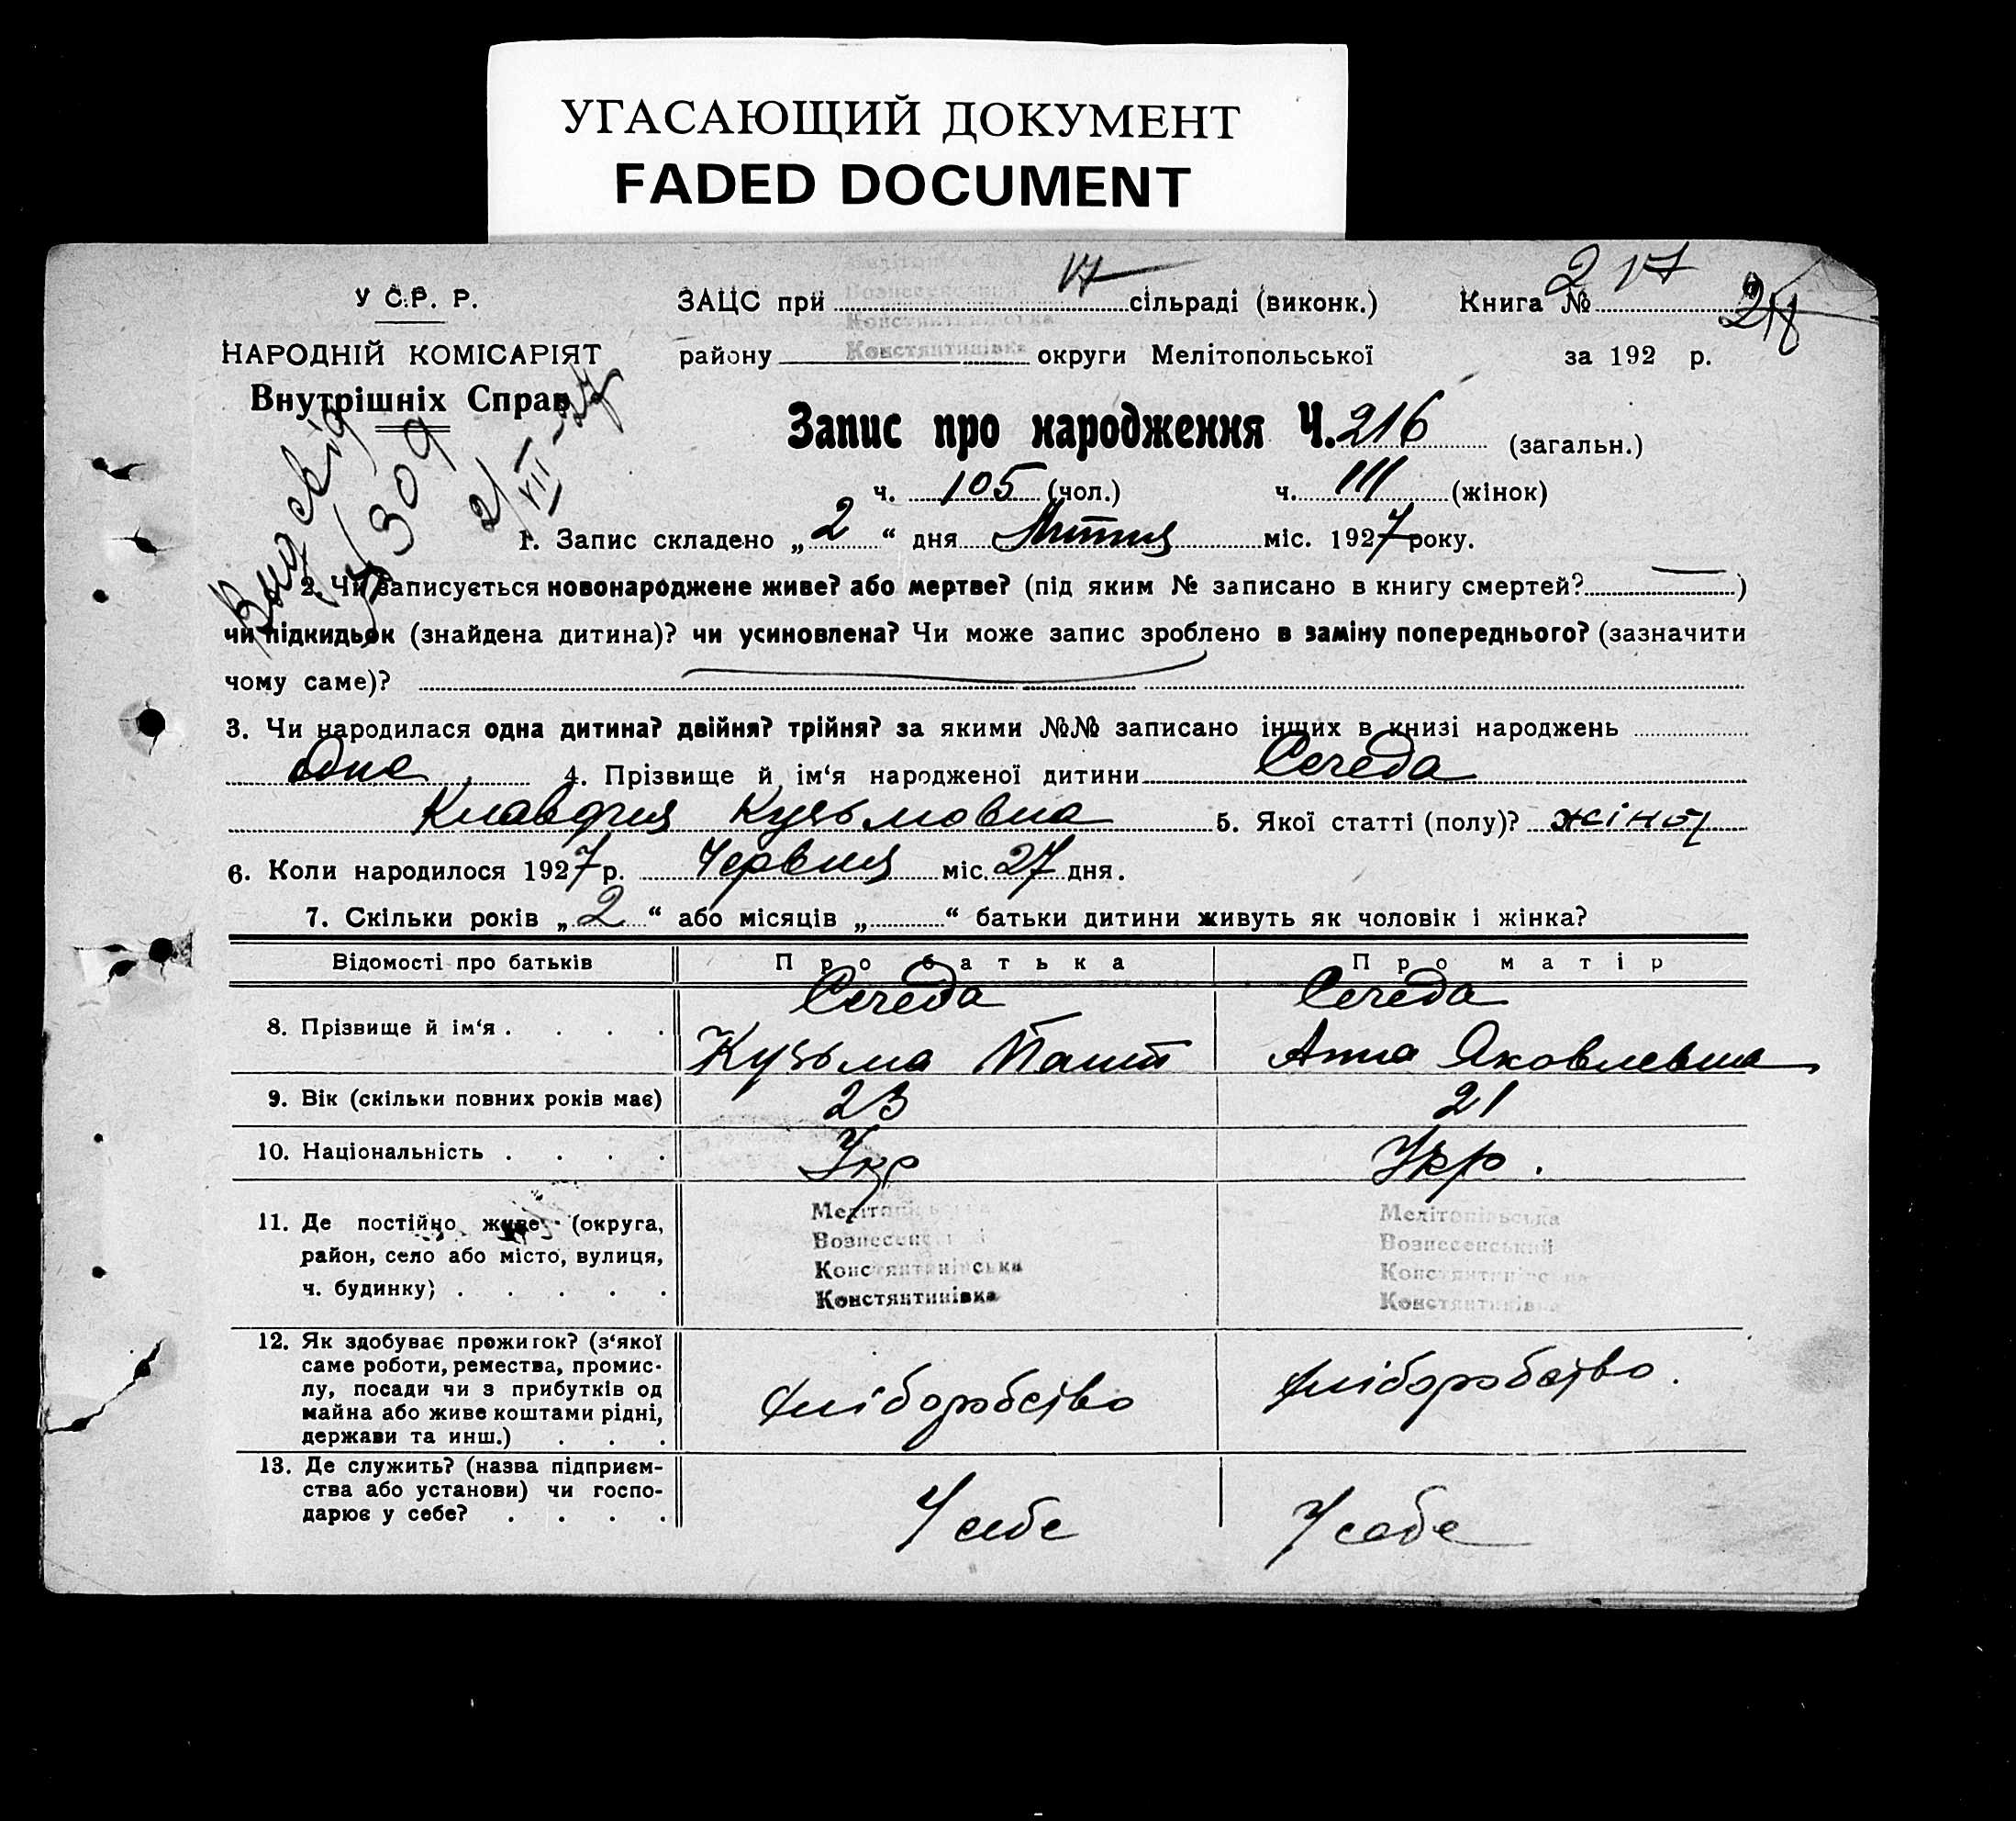 УГАСАЮЩИЙ ДОКУМЕНТ
FADED DOCUMENT
У С.Р. Р.
НАРОДНІЙ КОМІСАРІЯТ
Внутрішніх Справ
ЗАЦС при сільраді (виконк.) Книга № 2 17
району Констянтинівка округи Мелітопольської за 192 р.
Запис про народження Ч. 216 (загальн.)
ч. 105 (чол.) ч. 111 (жінок)
1. Запис складено „ 2 “ дня Липня міс. 1927 року.
2. Чи записується новонароджене живе? або мертве? (під яким № записано в книгу смертей? )
чи підкидьок (знайдена дитина)? чи усиновлена? Чи може запис зроблено в заміну попереднього? (зазначити
чому саме)?
3. Чи народилася одна дитина? двійня? трійня? за якими №№ записано інщих в книзі народжень
Одне 4. Прізвище й ім‘я народженої дитини Середа
Клавдия Кузьмовна 5. Якої статті (полу)? жіноч
6. Коли народилося 1927 р. Червня міс. 27 дня.
7. Скільки років „ 2 “ або місяців „ “ батьки дитини живуть як чоловік і жінка?
Відомості про батьків Про батька Про матір
8. Прізвище й ім‘я . . . . Середа Середа
Кузьма Анна Яковлевна
9. Вік (скільки повних років має) 23 21
10. Національність . . . . Укр Укр.
11. Де постійно живе (округа,
район, село або місто, вулиця,
ч. будинку) . . . . .
Мелітопільська Мелітопільська
Вознесенський Вознесенський
Констянтинівська Констянтинівська
Констянтинівка Констянтинівка
12. Як здобуває прожиток? (з‘якої
саме роботи, ремества, промис-
лу, посади чи з прибутків од
майна або живе коштами рідні,
держави та инш.) . . .
хліборобство хліборобство.
13. Де служить? (назва підприєм-
ства або установи) чи госпо-
дарює у себе? . . . .
У себе У себе